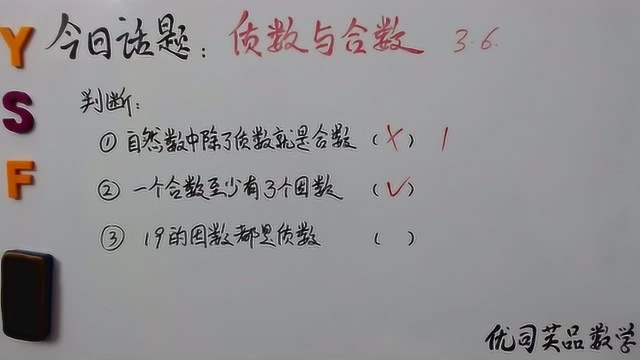 Y
S
F
今日话题：质数与合数 3.6.
判断：
① 自然数中除了质数就是合数 (×) 1
② 一个合数至少有3个因数 (√)
③ 19的因数都是质数 ( )
优司芙品数学